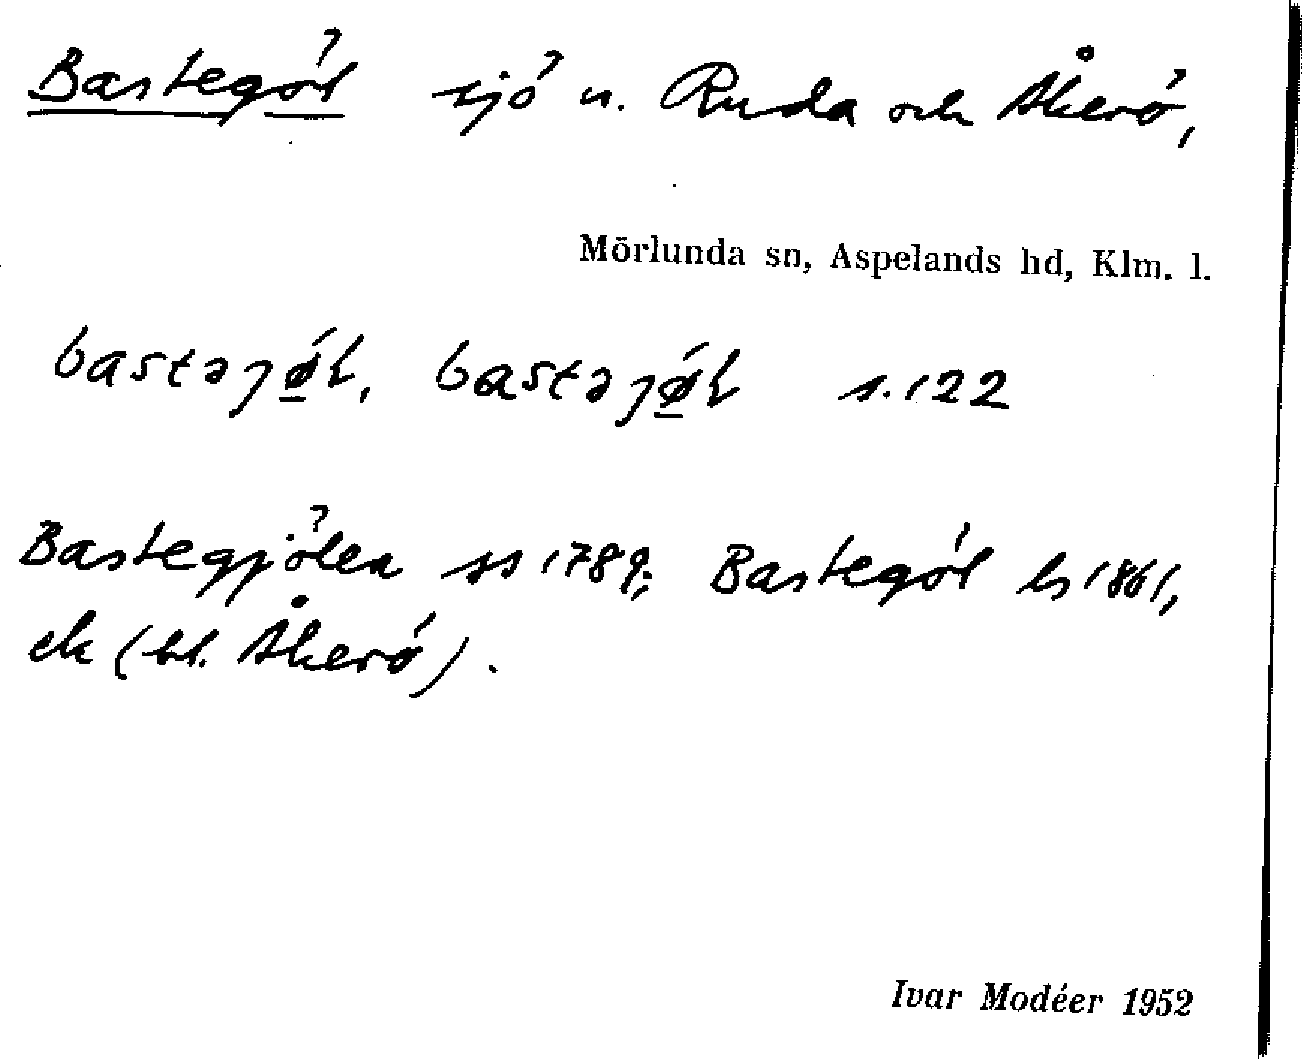 Bastegöl sjö u. Ruda och Åkerö,
Mörlunda sn, Aspelands hd, Klm. l.
bastəjø̲l, bastəjø̲l s. 122
Bastegjölen ss 1789; Bastegöl ls 1861,
ek (bl. Åkerö).
Ivar Modéer 1952